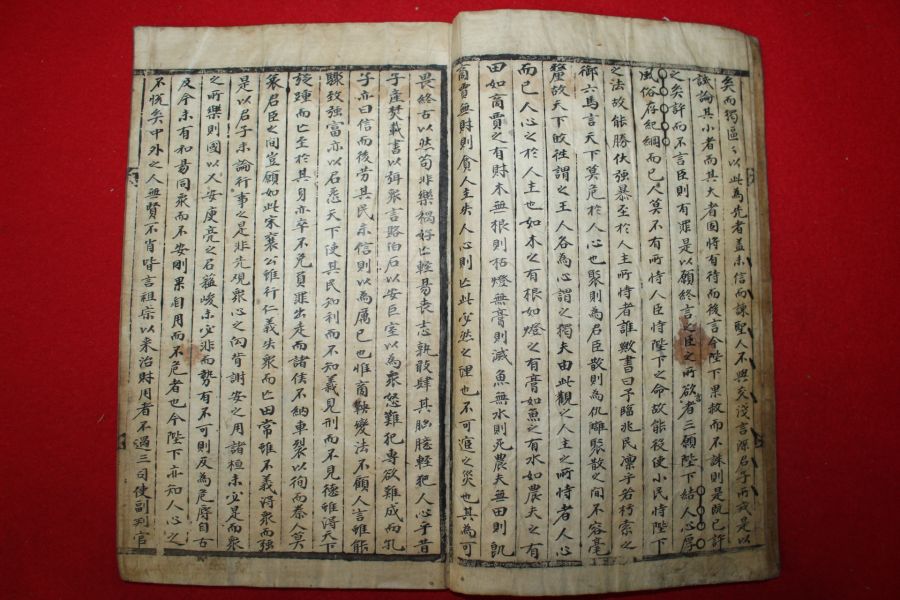 矣而獨區〻以此為先者盖未信而諫聖人不與交淺言深君子所戒是以
試論其小者而其大者固將有待而後言今陛下果赦而不誅則是既已許
之矣許而不言臣則有罪是以願終言之臣之所欲言者三願陛下結人心厚
風俗存紀綱而已人莫不有所恃人臣恃陛下之命故能役使小民恃陛下
之法故能勝伏強暴至於人主所恃者誰歟書曰予臨兆民凛乎若朽索之
御六馬言天下莫危於人心也聚則為君臣散則為仇雔聚散之間不容毫
釐故天下敀徃謂之王人各為心謂之獨夫由此觀之人主之所恃者人心
而已人心之於人主也如木之有根如燈之有膏如魚之有水如農夫之有
田如商賈之有財木無根則枯燈無膏則滅魚無水則死農夫無田則飢
商賈無財則貧人主失人心則亡此必然之理也不可逭之災也其為可
畏終古以然苟非樂禍好亡輕易喪志孰敢肆其胸臆輕犯人心乎昔
子產焚載書以弭衆言賂伯石以安巨室以為衆怒難犯專欲難成而孔
子亦曰信而後勞其民未信則以為厲已也惟商鞅變法不顧人言雖能
驟致強富亦以召怨天下使其民知利而不知義見刑而不見德雖得天下
旋踵而亡至於其身亦卒不免負罪出走而諸侯不納車裂以徇而秦人莫
哀君臣之間豈願如此宋襄公雖行仁義失衆而亡田常雖不義得衆而強
是以君子未論行事之是非先觀衆心之向背謝安之用諸桓未必是而衆
之所樂則國以乂安庾亮之召蘇峻未必非而勢有不可則反為危辱自古
及今未有和易同衆而不安剛果自用而不危者也今陛下亦知人心之
不悅矣中外之人無賢不肖皆言祖宗以來治財用者不過三司使副判官